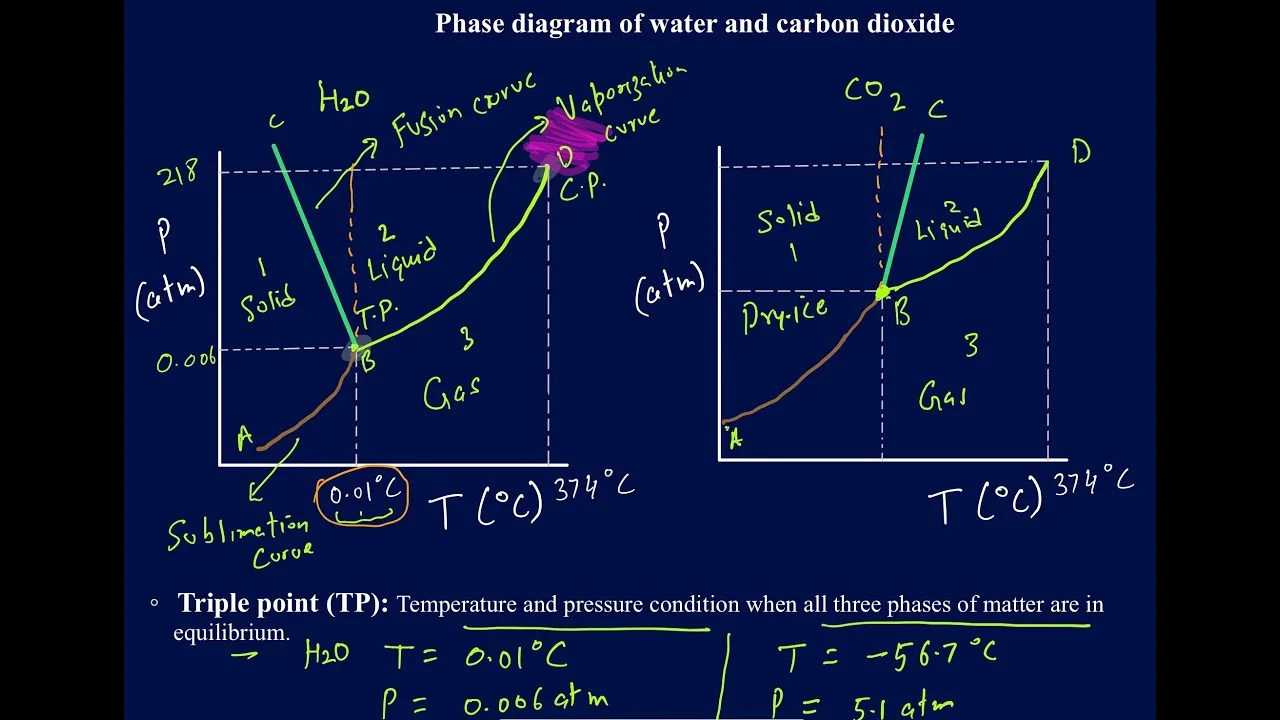 Phase diagram of water and carbon dioxide
H2O
C
Fusion curve
Vaporization
curve
218
D
C.P.
P
(atm)
1
Solid
2
Liquid
T.P.
0.006
B
3
Gas
A
0.01°C
T (°C)
374°C
Sublimation
curve
CO2
C
D
P
(atm)
Solid
1
2
Liquid
Dry-ice
B
3
Gas
A
T (°C)
374°C
Triple point (TP): Temperature and pressure condition when all three phases of matter are in
equilibrium.
H2O T = 0.01°C
P = 0.006 atm
T = -56.7°C
P = 5.1 atm